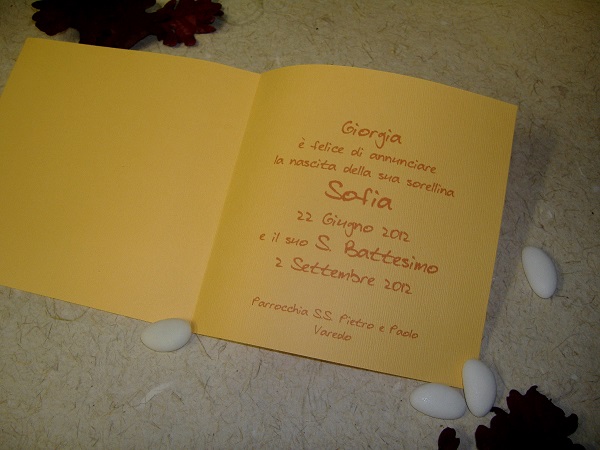 Giorgia
è felice di annunciare
la nascita della sua sorellina
Sofia
22 Giugno 2012
e il suo S. Battesimo
2 Settembre 2012
Parrocchia S.S. Pietro e Paolo
Varedo